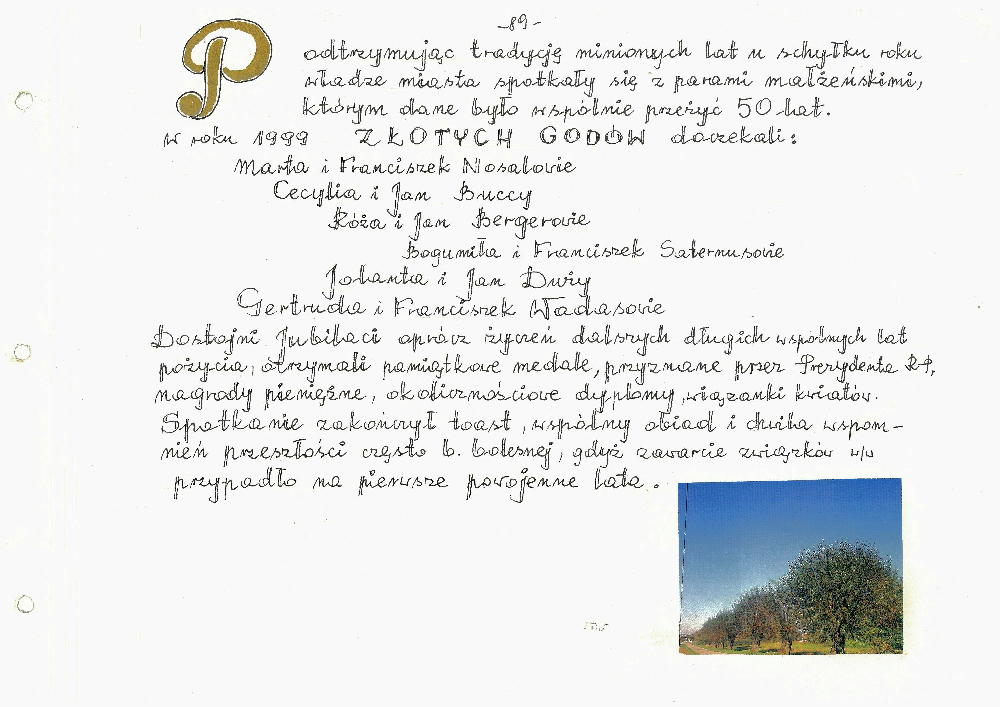 -89-
Podtrzymując tradycję minionych lat u schyłku roku
władze miasta spotkały się z parami małżeńskimi,
którym dane było wspólnie przeżyć 50 lat.
w roku 1999 ZŁOTYCH GODÓW doczekali:
Marta i Franciszek Nosalowie
Cecylia i Jan Buccy
Róża i Jan Bergerowie
Bogumiła i Franciszek Saternusowie
Jolanta i Jan Duży
Gertruda i Franciszek Wadasowie
Dostojni Jubilaci oprócz życzeń dalszych długich wspólnych lat
pożycia, otrzymali pamiątkowe medale, przyznane przez Prezydenta RP,
nagrody pieniężne, okolicznościowe dyplomy, wiązanki kwiatów.
Spotkanie zakończył toast, wspólny obiad i chwila wspom-
nień przeszłości często b. bolesnej, gdyż zawarcie związków w/w
przypadło na pierwsze powojenne lata.